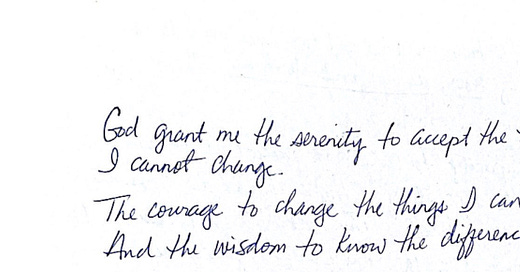 God grant me the serenity to accept the
I cannot change.
The courage to change the things I can
And the wisdom to know the differenc